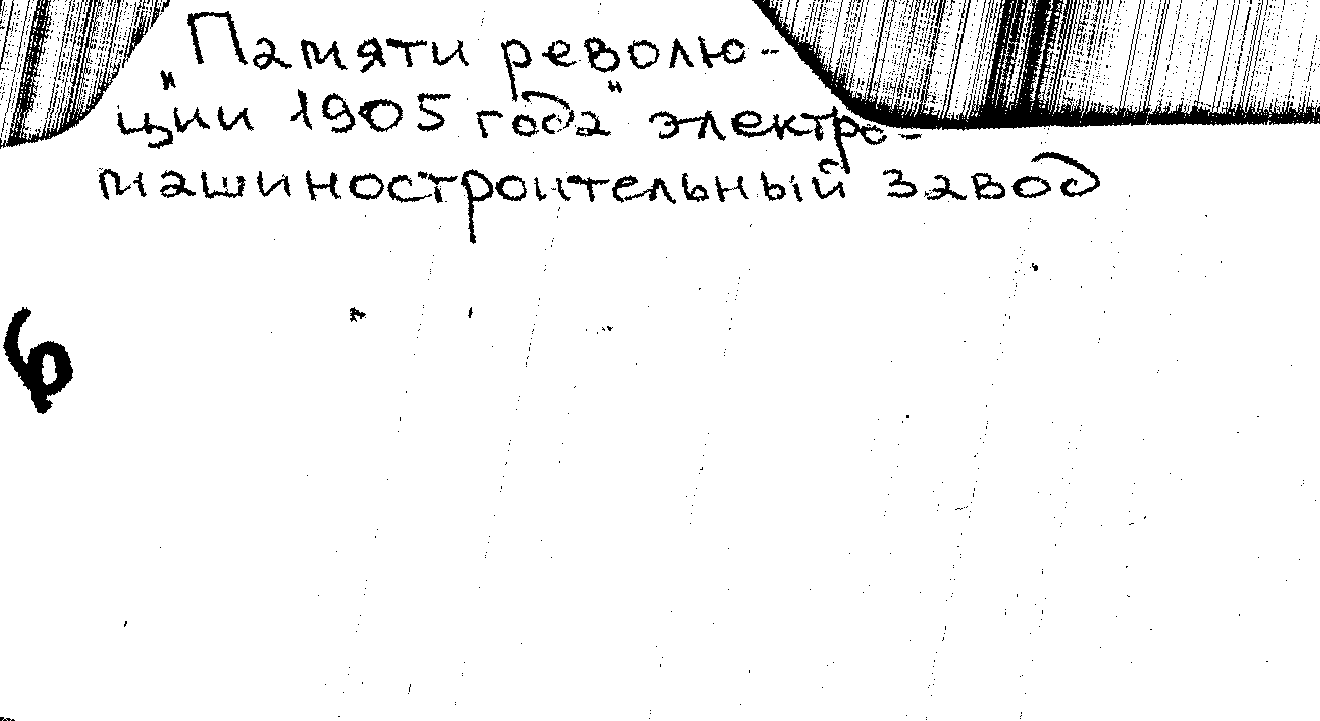 "Памяти револю-
ции 1905 года" электро-
машиностроительный завод
6